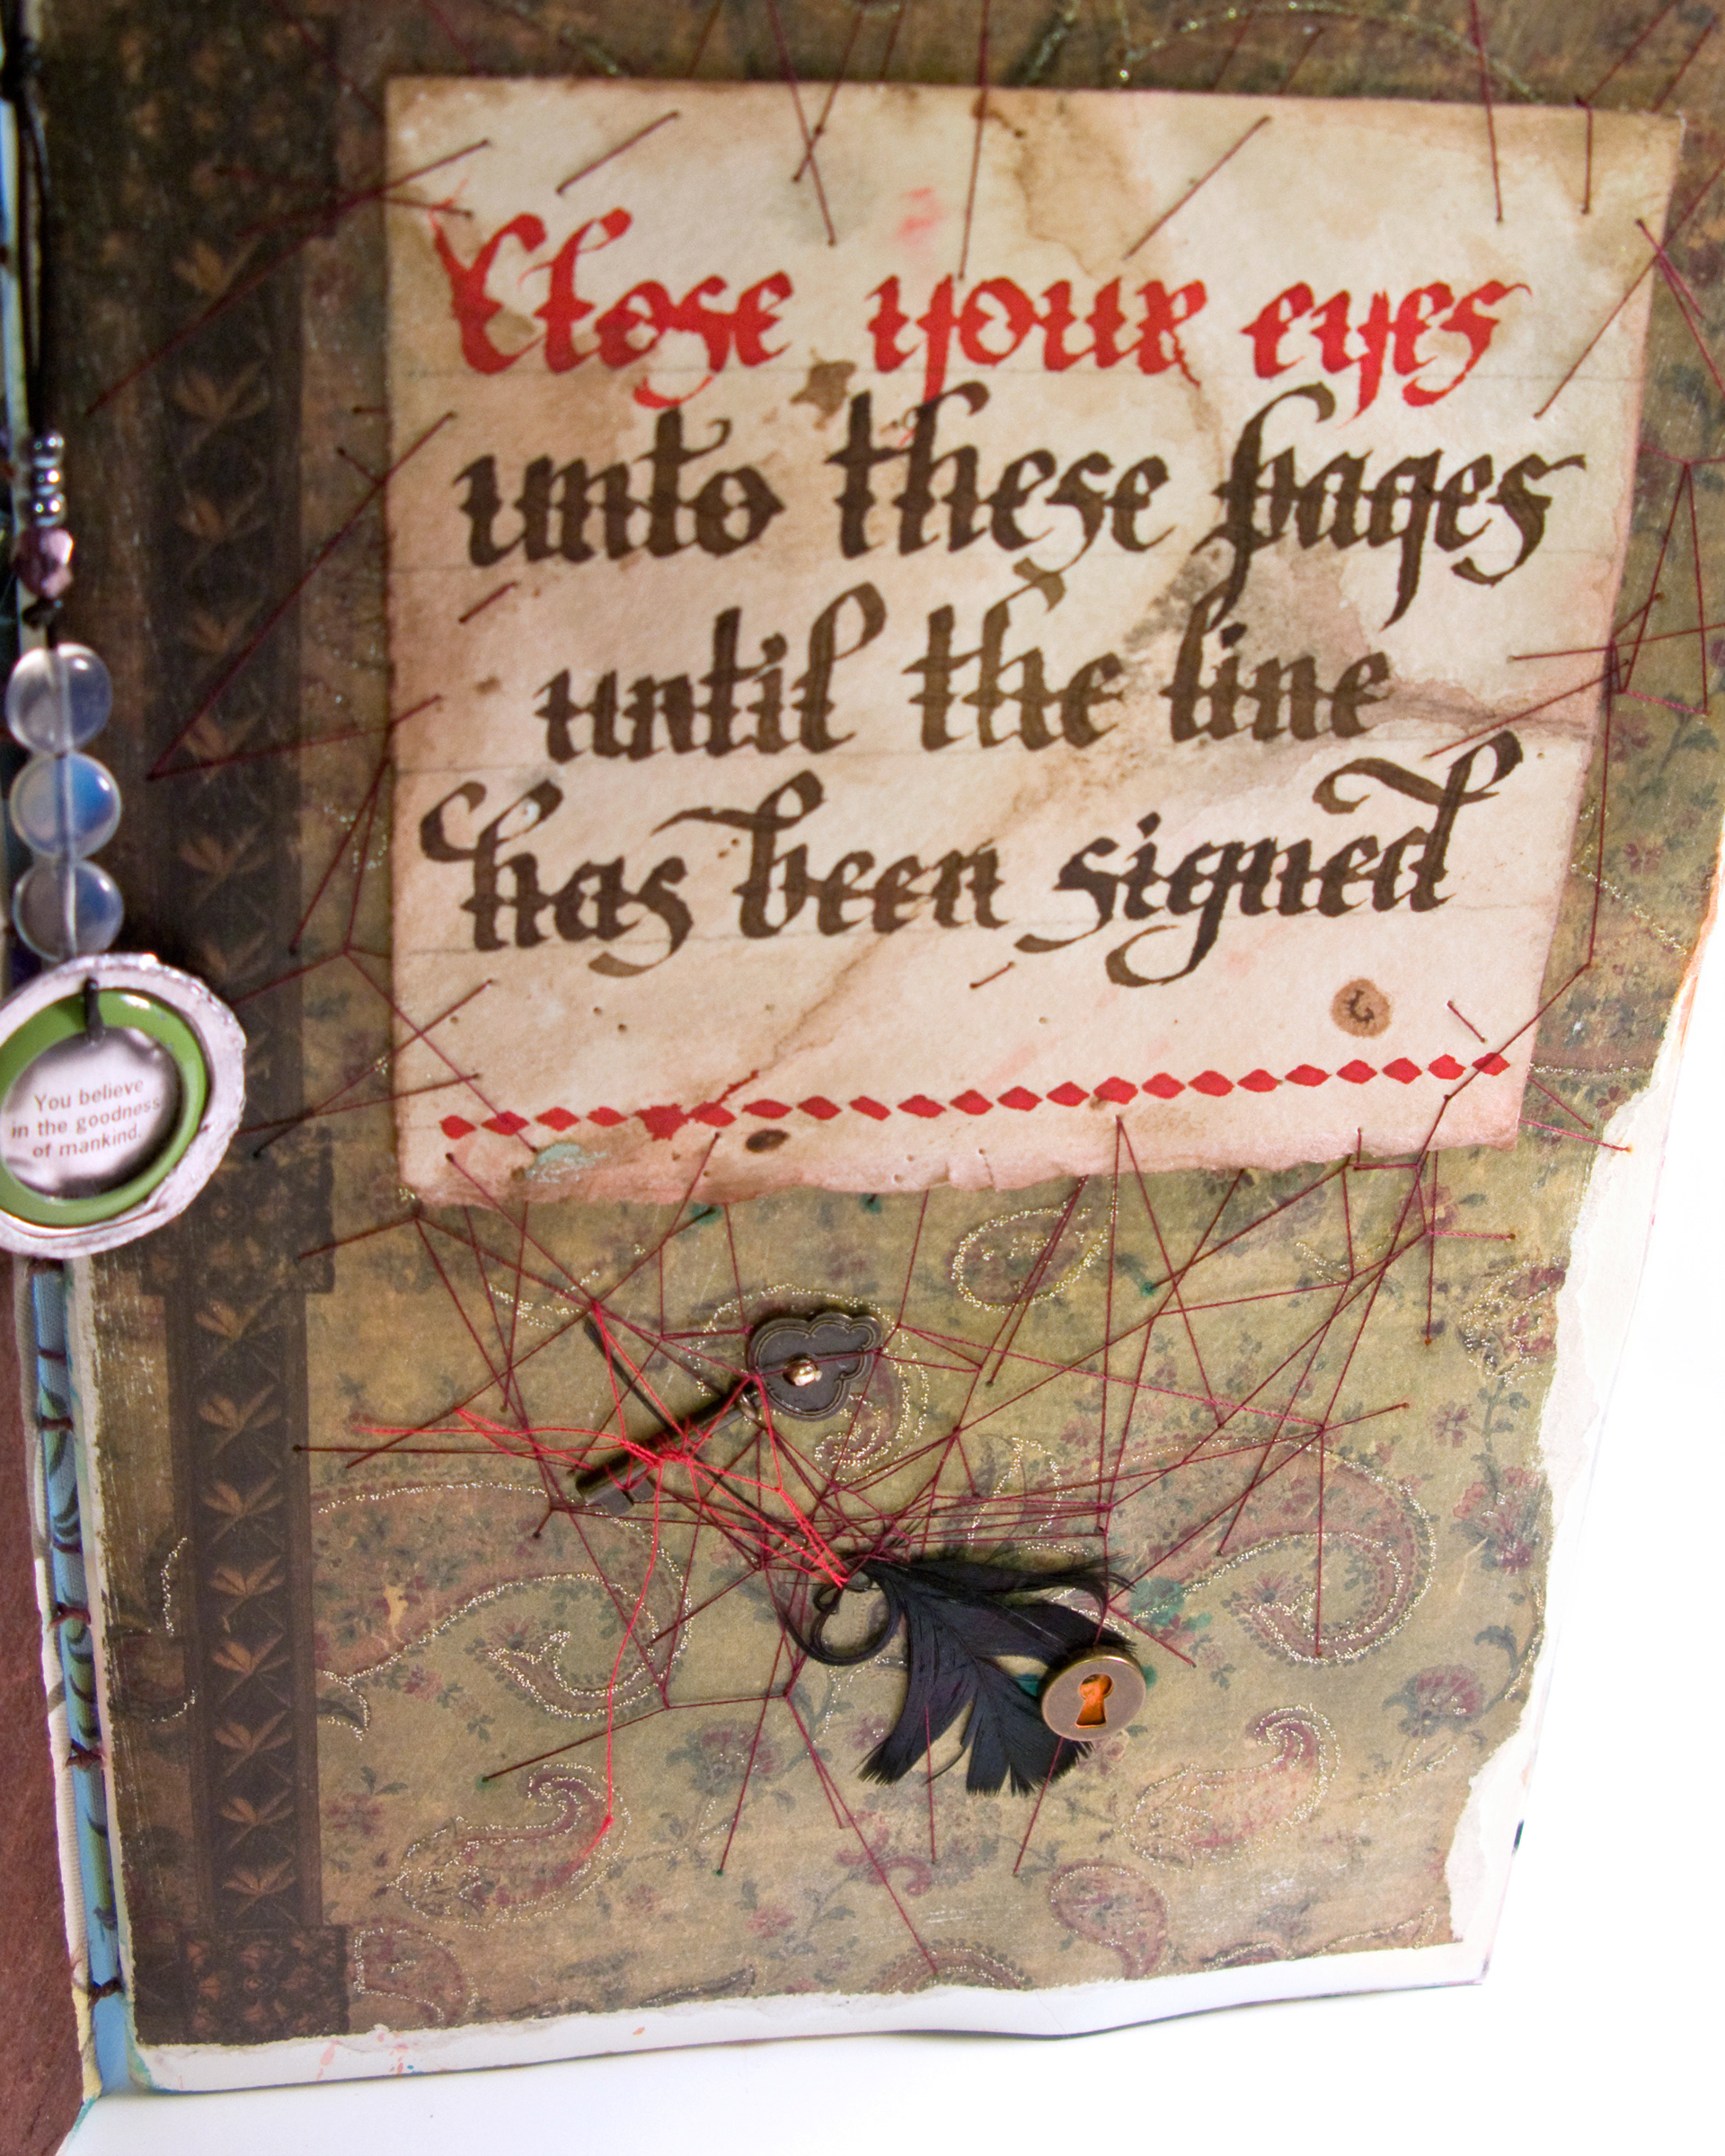 Close your eyes
unto these pages
until the line
has been signed
You believe
in the goodness
of mankind.